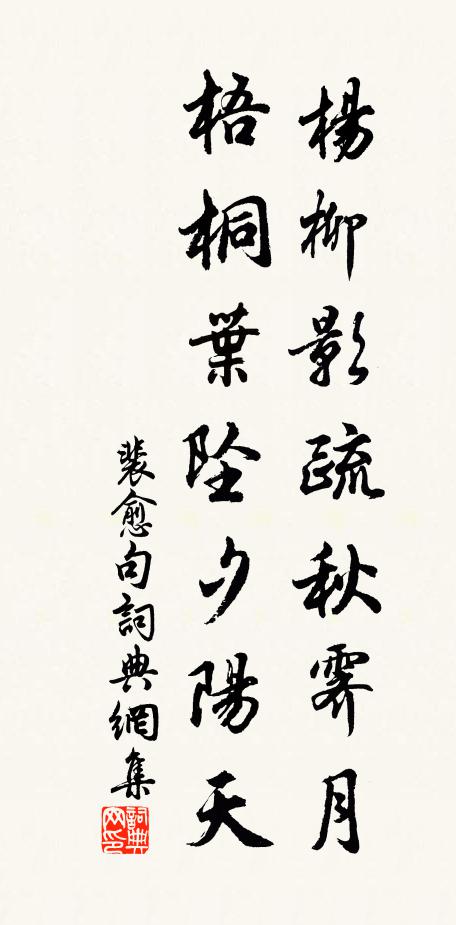 楊柳影疏秋霽月
梧桐葉墜夕陽天
裴愈句詞典網集
詞典网印